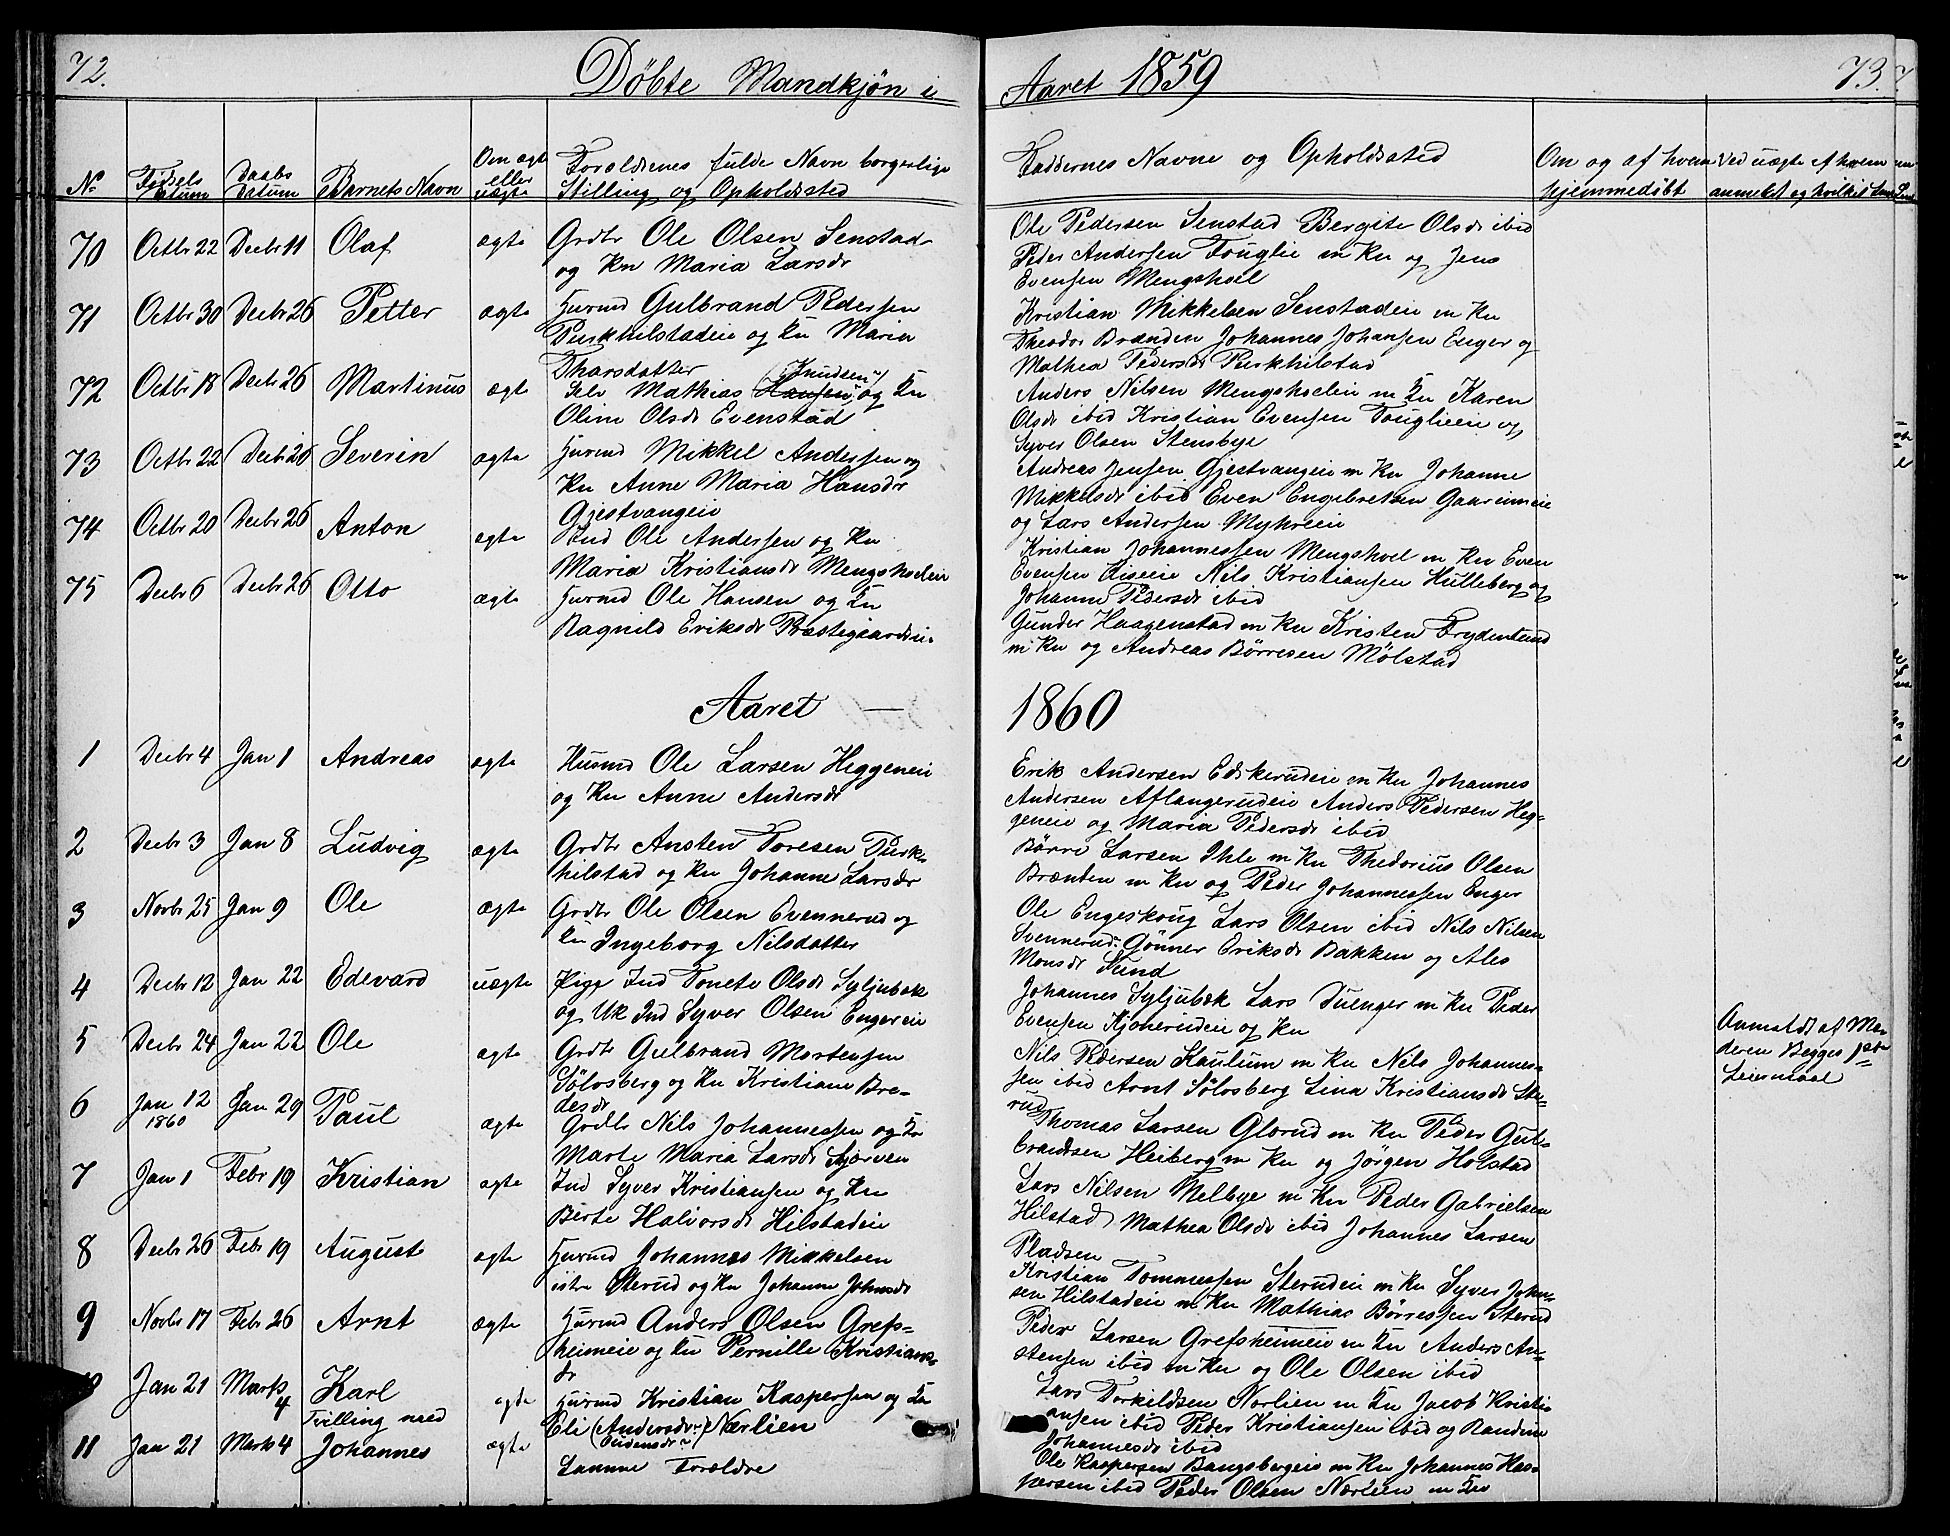 72.
Döbte Mandkjøn i
Aaret 1859
73.
No
Fødsels Datum
Daabs Datum
Barnets Navn
Om ægte eller uægte
Forældrenes fulde Navn borgerlige
Stilling og Opholdssted
Faddernes Navne og Opholdssted
Om og af hvem
hjemmedöbt
Ved uægte af hvem
anmeldt og hvilket
70 Octbr 22 Decbr 11 Olaf ægte Grdbr Ole Olsen Senstad
og Kn Maria Larsdr
Ole Pedersen Senstad Bergite Olsdr ibid
Peder Andersen Fouglie m Kn og Jens
Evensen Mengshoel
71 Octbr 30 Decbr 26 Petter ægte Husmd Gulbrand Pedersen
Purkhilstadeie og Kn Maria
Tharsdatter
Kristian Mikkelsen Senstadeie m Kn
Theodor Brænden Johannes Johansen Enger og
Mathea Pedersdr Purkhilstad
72 Octbr 18 Decbr 26 Martinus ægt Selv Mathias Hansen (Knudsen) og Kn
Oline Olsdr Evenstad
Anders Nilsen Mengshoelin m Kn Karen
Olsdr ibid Kristian Evensen Fouglieeie og
Syver Olsen Stensbye
73 Octbr 22 Decbr 26 Severin ægte Husmd Mikkel Andersen og
Kn Anne Maria Hansdr
Gjestvangeie
Andreas Jensen Gjestvangeie m Kn Johanne
Mikkelsdr ibid Even Engebretsen Gaarimeie
og Lars Andersen Myhreeie
74 Octbr 20 Decbr 26 Anton ægte Ind Ole Andersen og Kn
Maria Kristiansdr Mengshoelen
Kristian Johannessen Mengshoel m Kn Even
Evensen Kiseeie Nils Kristiansen Hulleberg og
Johanne Pedersdr ibid
75 Decbr 6 Decbr 26 Otto ægte Husmd Ole Hansen og Kn
Ragnild Eriksdr Præstegaardsei
Gunder Haagenstad m Kn Kristen Frydenlund
m Kn og Andreas Börresen Mölstad
Aaret 1860
1 Decbr 4 Jan 1 Andreas ægte Husmd Ole Larsen Heggeneie
og Kn Anne Andersdr
Erik Andersen Edskerudeie m Kn Johannes
Andersen Aflangerudeie Anders Pedersen Heg-
geneie og Maria Pedersdr ibid
2 Decbr 3 Jan 8 Ludvig ægte Grdbr Ansten Toresen Purk-
hilstad og Kn Johanne Larsdr
Börre Larsen Ihle m Kn Thedorius Olsen
Brænden m Kn og Peder Johannessen Enger
3 Novbr 25 Jan 9 Ole ægte Grdbr Ole Olsen Evennerud og
Kn Ingeborg Nilsdatter
Ole Engeskoug Lars Olsen ibid Nils Nilsen
Svennerud Gönner Eriksdr Bakken og Ales
Monsdr Sund
4 Decbr 12 Jan 22 Edevard uægte Pige Ind Tonete Olsdr Syljubæk
og Uk Ind Syver Olsen Engereie
Johannes Syljubæk Lars Tuenger m Kn Peder
Evensen Kjonerudeie og Kn
Anmeldt af Mo-
deren Begges 1ste
Leiermaal
5 Decbr 24 Jan 22 Ole ægte Grdbr Gulbrand Mortensen
Sölosberg og Kn Kristiane Bre-
desdr
Nils Pedersen Kaulum m Kn Nils Johannes-
sen ibid Arnt Sölosberg Lina Kristiansdr Ste-
rud
6 Jan 12 1860 Jan 29 Paul ægte Grdbr Nils Johannessen og Kn
Marte Maria Larsdr Skjörven
Thomas Larsen Glorud m Kn Peder Gul-
brandsen Heiberg m Kn og Jörgen Holstad
7 Jan 1 Febr 19 Kristian ægte Ind Syver Kristiansen og Kn
Berte Halvorsdr Hilstadeie
Lars Nilsen Melbye m Kn Peder Gabrielsen
Hilstad Mathea Olsdr ibid Johannes Larsen
Pladsen
8 Decbr 26 Febr 19 August ægte Husmd Johannes Mikkelsen
Sterud og Kn Johanne Johnsdr
Kristian Tommessen Sterudeie m Kn Syver John-
sen Hilstadeie m Kn Mathias Börressen Sterud
9 Novbr 17 Febr 26 Arnt ægte Husmd Anders Olsen Grefs-
heimeie og Kn Pernille Kristians-
dr
Peder Larsen Grefsheimeie m Kn Anders An-
stensen ibid m Kn og Ole Olsen ibid
10 Jan 21 Marts 4 Karl
Tvilling med
ægte Husmd Kristian Kaspersen og Kn
Eli (Andersdr) Nærlien
Lars Torkildsen Norlien m Kn Jacob Kristi-
ansen ibid Peder Kristiansen ibid og Randine
Johannesdr ibid
11 Jan 21 Marts 4 Johannes ægte Samme Forældre
Ole Kaspersen Bangsbergeie m Kn Johannes Kas-
persen ibid Peder Olsen Nærlien m Kn